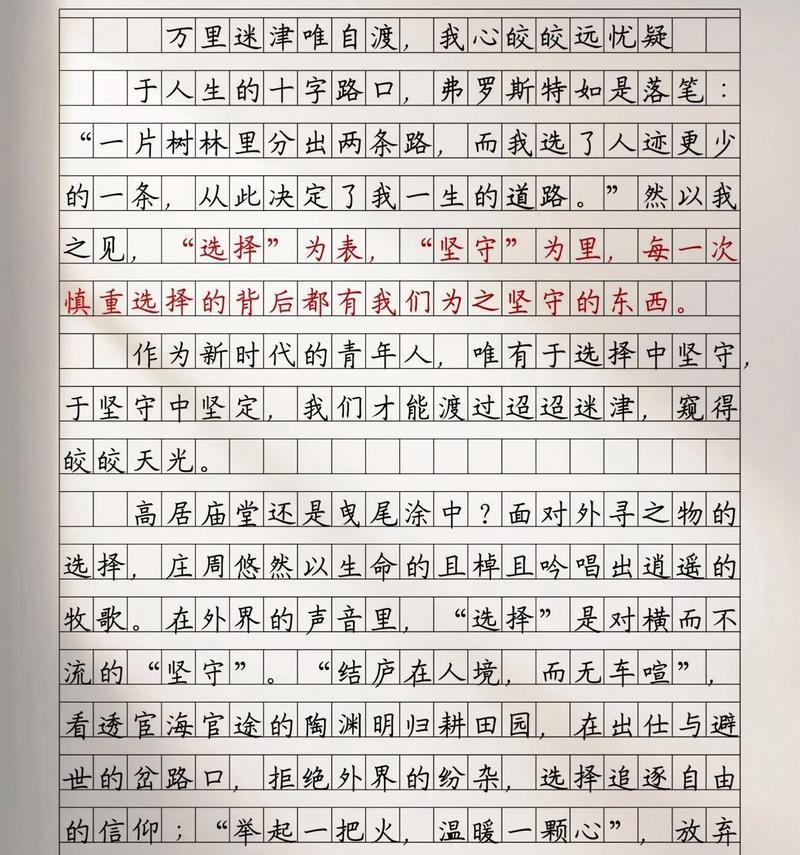 万里迷津唯自渡，我心皎皎远忧疑
于人生的十字路口，弗罗斯特如是落笔：
“一片树林里分出两条路，而我选了人迹更少
的一条，从此决定了我一生的道路。”然以我
之见，“选择”为表，“坚守”为里，每一次
慎重选择的背后都有我们为之坚守的东西。
作为新时代的青年人，唯有于选择中坚守，
于坚守中坚定，我们才能渡过迢迢迷津，窥得
皎皎天光。
高居庙堂还是曳尾涂中？面对外寻之物的
选择，庄周悠然以生命的且棹且吟唱出逍遥的
牧歌。在外界的声音里，“选择”是对横而不
流的“坚守”。“结庐在人境，而无车喧”，
看透宦海官途的陶渊明归耕田园，在出仕与避
世的岔路口，拒绝外界的纷杂，选择追逐自由
的信仰；“举起一把火，温暖一颗心”，放弃